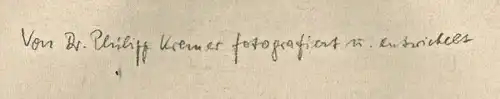 Von Dr. Philipp Kremer fotografiert u. entwickelt